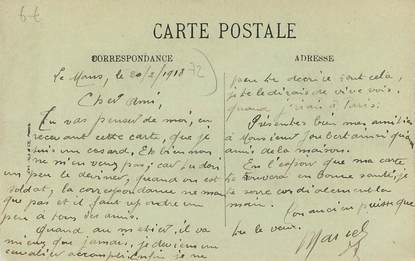 6€
CARTE POSTALE
CORRESPONDANCE
ADRESSE
Le Mans, le 20/2/1913
72
Cher ami,
Tu vas penser de moi, en
recevant cette carte, que je
suis un cosard. Et bien non
ne m'en veux pas; car tu dois
un peu le deviner, quand on est
soldat, la correspondance ne man
que pas et il faut répondre un
peu à tous ses amis.
Quand au métier, il va
mieux que jamais, je deviens un
cavalier accompli. Enfin je ne
peux te décrire tout cela,
je te le dirais de vive voix
quand j'irai à Paris.
Présentes bien mes amitiés
à Monsieur Joubert ainsi qu'aux
amis de la maison.
En l'espoir que ma carte
te trouvera en bonne santé, je
te serre cordialement la
main.
Ton ancien puisque
tu le veux.
Marcel